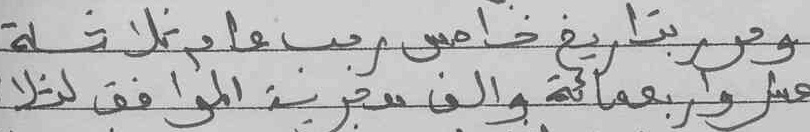 وحرر بتاريخ خامس رجب عام ثلاثة
عشر وأربعمائة وألف هجرية الموافق لثلا